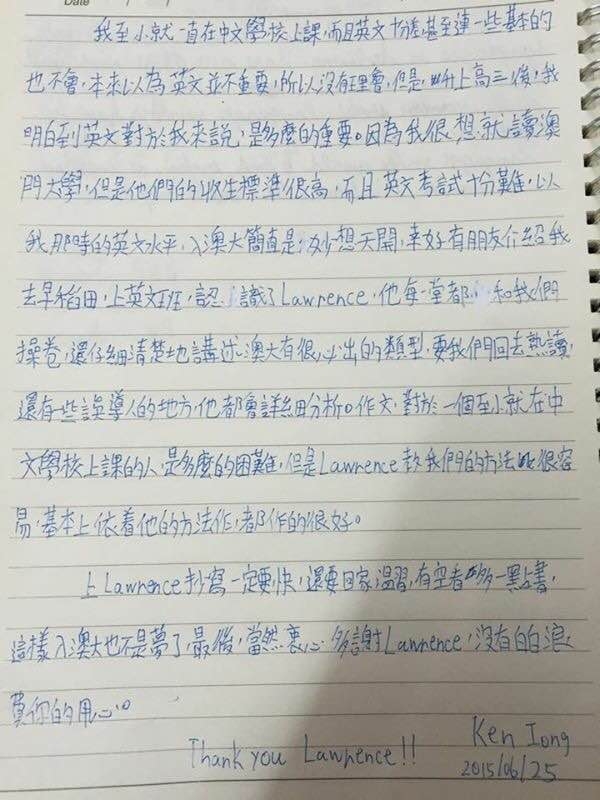 Date
我至小就一直在中文學校上課,而且英文十渣,甚至連一些基本的
也不會,本來以為英文並不重要,所以沒有理會,但是,升上高三後,我
明白到英文對於我來說,是多麼的重要。因為我很想就讀澳
門大學,但是他們的收生標準很高,而且英文考試十分難,以
我那時的英文水平,入澳大簡直是妙想天開,幸好有朋友介紹我
去早稻田,上英文班,認識了Lawrence,他每一堂都和我們
操卷,還仔細清楚地講述澳大有很必出的類型,要我們回去熟讀,
還有些誤導人的地方,他都會詳細分析。作文,對於一個至小就在中
文學校上課的人,是多麼的困難,但是Lawrence教我們的方法很容
易,基本上依着他的方法作,都作的很好。
上Lawrence抄寫一定要快,還要回家溫習,有空看多一點書,
這樣入澳大也不是夢了最後,當然衷心多謝Lawrence,沒有白白浪
費你的用心。
Thank you Lawrence!!
Ken Iong
2015/06/25